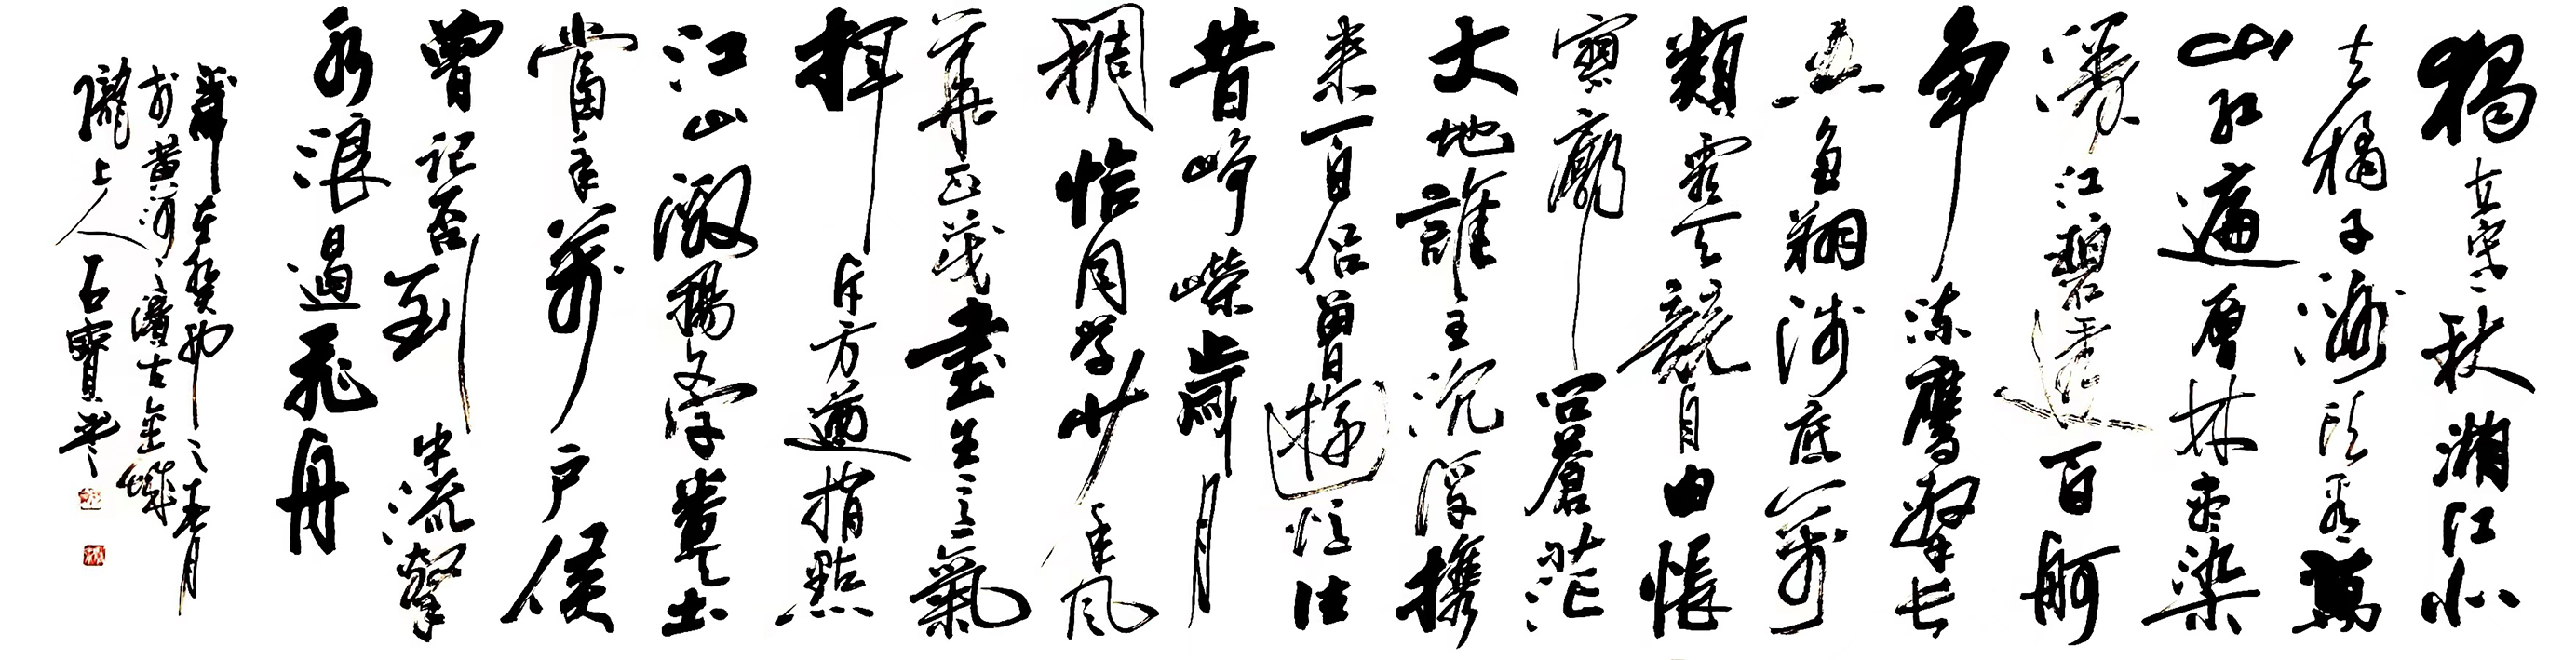 獨立寒秋湘江北
去橘子洲頭看萬
山紅遍層林盡染
漫江碧透百舸
争流鷹擊長
空魚翔淺底萬
類霜天競自由悵
寥廓問蒼茫
大地誰主沉浮攜
來百侣曾遊憶往
昔崢嶸歲月
稠恰同學少年風
華正茂書生意氣
揮斥方遒指點
江山激揚文字糞土
當年萬户侯
曾記否到中流擊
水浪遏飛舟
歲在癸卯之春月
於黄河之濱古金城
隴上人石寶